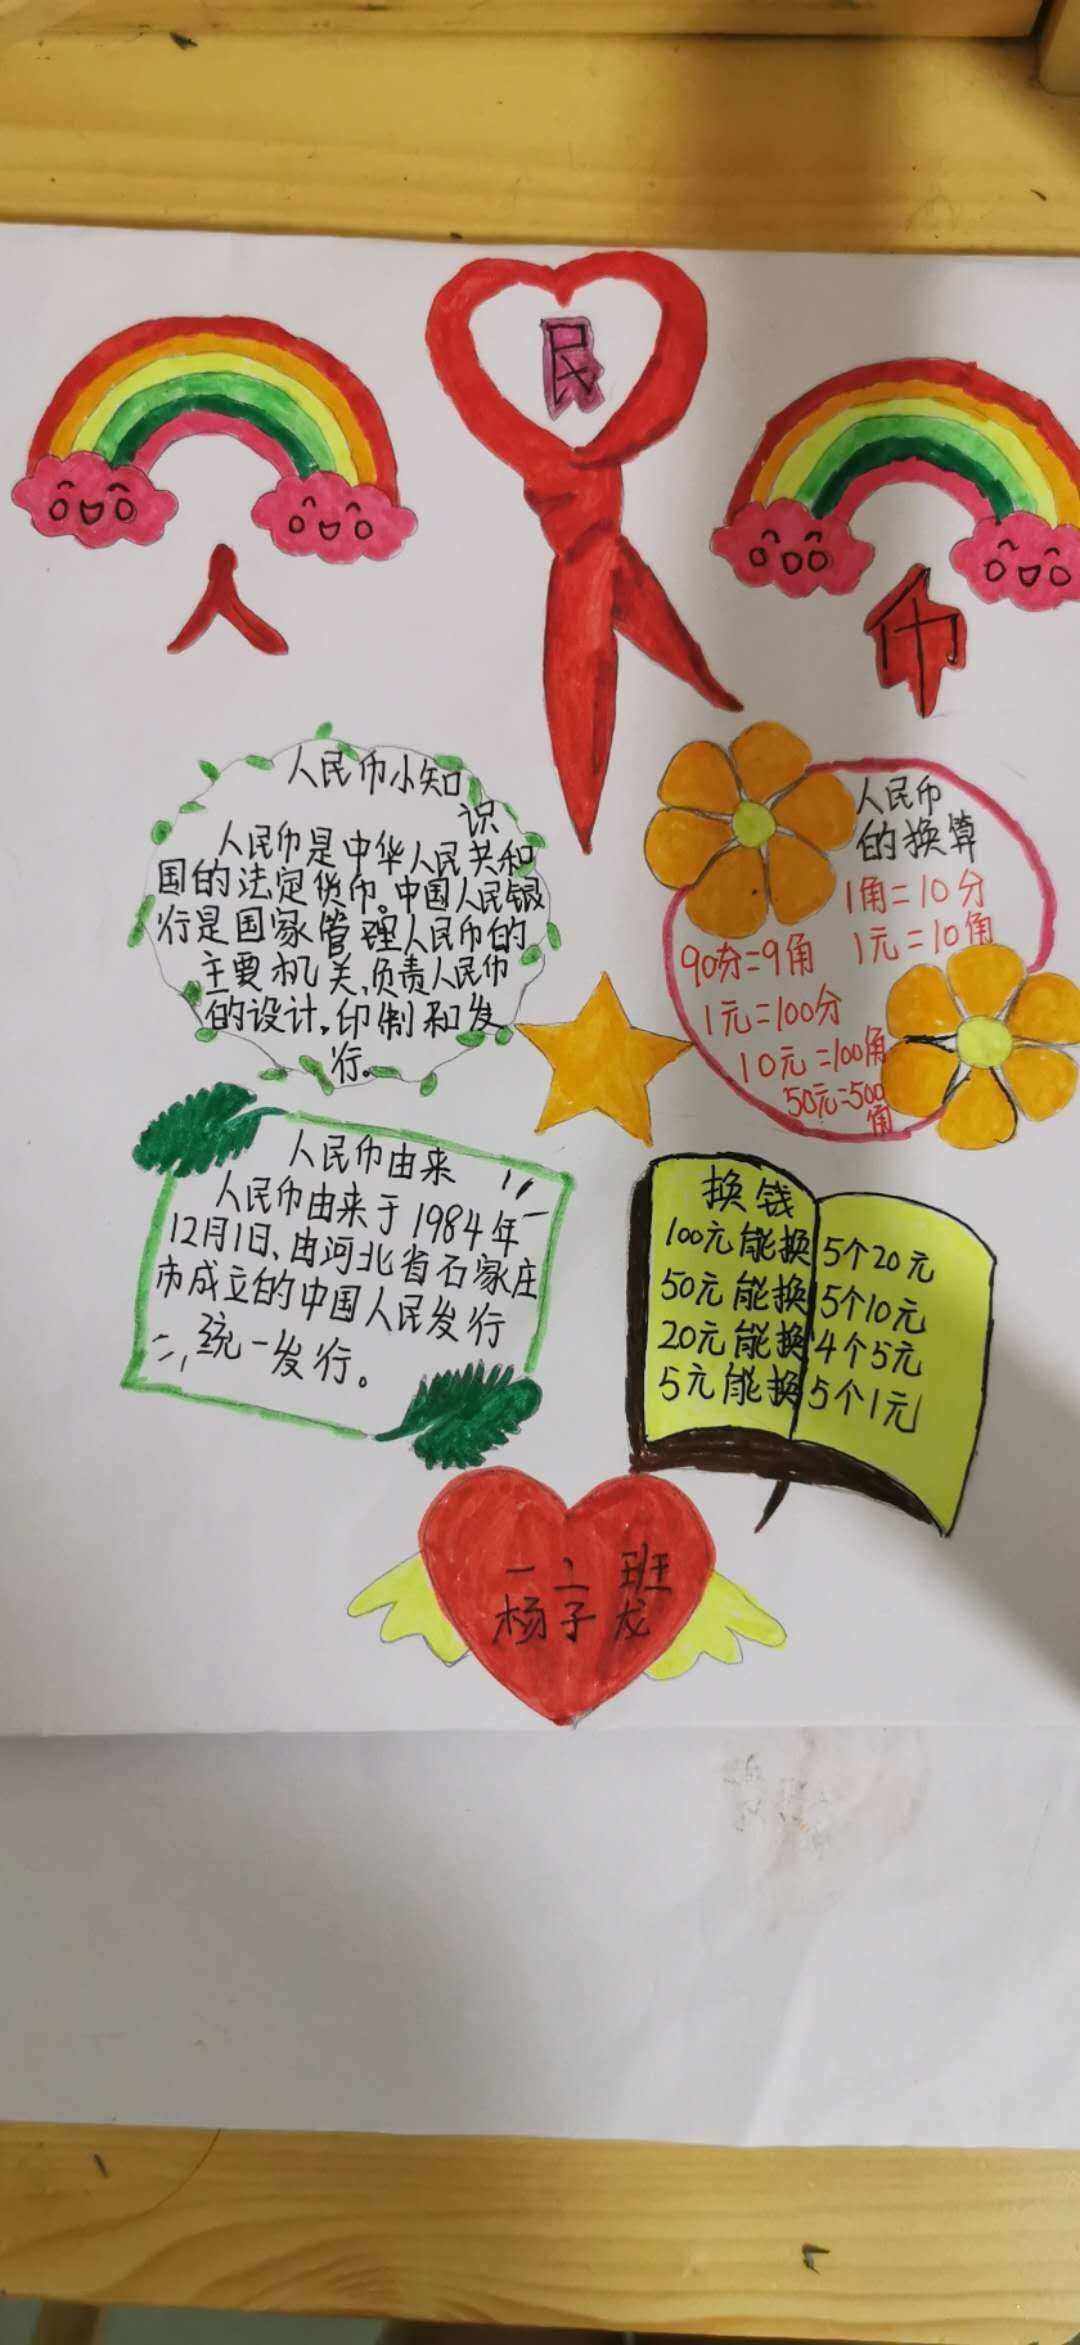 人
民
币
人民币小知
识
人民币是中华人民共和
国的法定货币。中国人民银
行是国家管理人民币的
主要机关,负责人民币
的设计,印制和发
行。
人民币
的换算
1角=10分
90分=9角 1元=10角
1元=100分
10元=100角
50元=500
角
人民币由来
人民币由来于1984年
12月1日、由河北省石家庄
市成立的中国人民发行
统一发行。
换钱
100元能换5个20元
50元能换5个10元
20元能换4个5元
5元能换5个1元
一上班
杨子龙